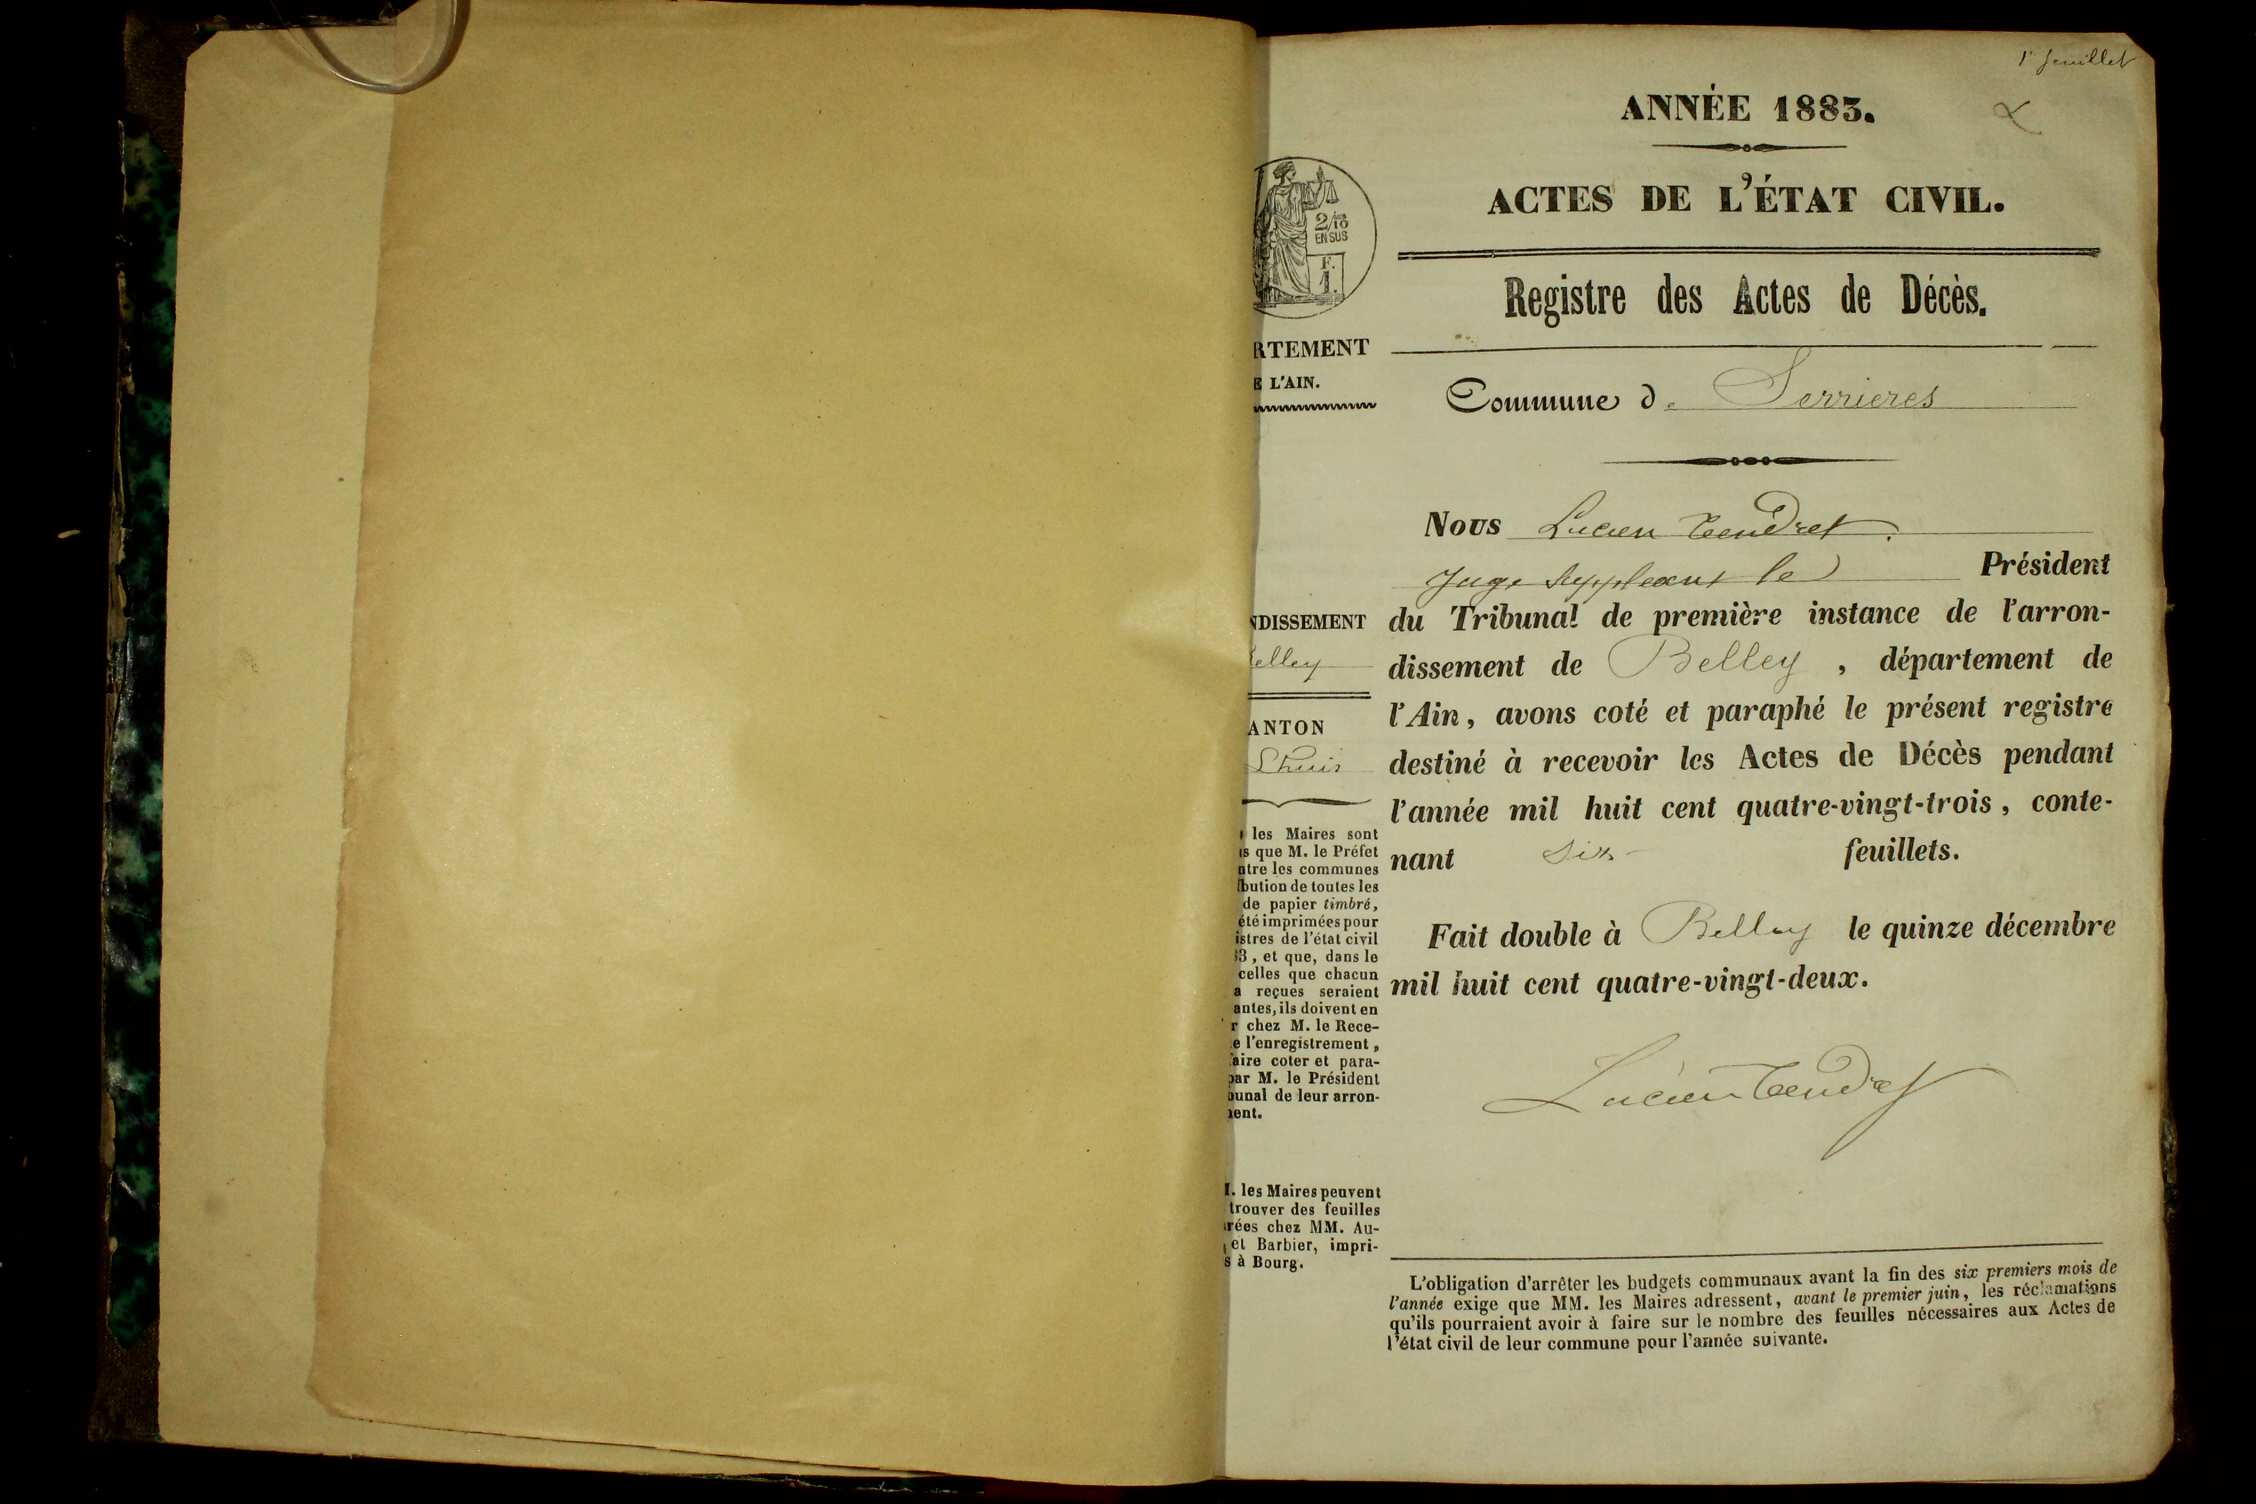 1er feuillet
ANNÉE 1883.
ACTES DE L'ÉTAT CIVIL.
2/10
EN SUS
F.
1.
Registre des Actes de Décès.
RTEMENT
E L'AIN.
Commune de Serrieres
Nous Lucien Tendret.
Juge Suppleant le Président
du Tribunal de première instance de l'arron-
dissement de Belley, département de
l'Ain, avons coté et paraphé le présent registre
destiné à recevoir les Actes de Décès pendant
l'année mil huit cent quatre-vingt-trois, conte-
nant six feuillets.
Fait double à Belley le quinze décembre
mil huit cent quatre-vingt-deux.
Lucien Tendret
NDISSEMENT
Belley
ANTON
Lhuis
les Maires sont
s que M. le Préfet
ntre les communes
bution de toutes les
de papier timbré,
été imprimées pour
istres de l'état civil
83, et que, dans le
celles que chacun
a reçues seraient
antes, ils doivent en
r chez M. le Rece-
e l'enregistrement,
faire coter et para-
par M. le Président
bunal de leur arron-
ment.
M. les Maires peuvent
trouver des feuilles
rées chez MM. Au-
et Barbier, impri-
s à Bourg.
L'obligation d'arrêter les budgets communaux avant la fin des six premiers mois de
l'année exige que MM. les Maires adressent, avant le premier juin, les réclamations
qu'ils pourraient avoir à faire sur le nombre des feuilles nécessaires aux Actes de
l'état civil de leur commune pour l'année suivante.